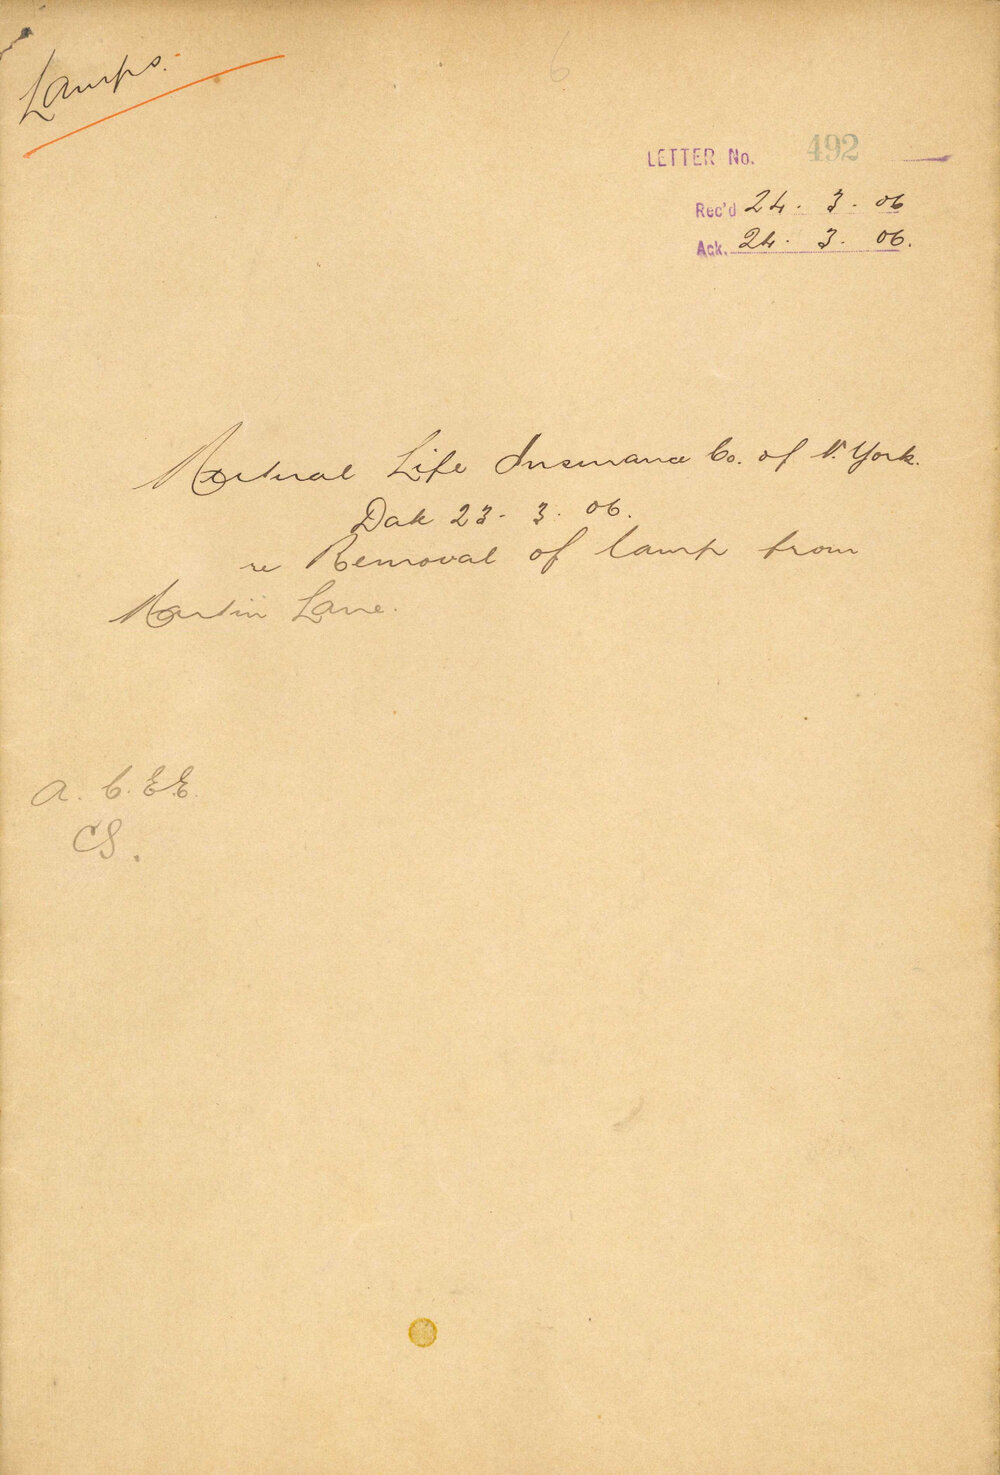 Lamps.
6
LETTER No. 492
Rec'd 24. 3. 06
Ack. 24. 3. 06.
Mutual Life Insurance Co. of N. York.
Date 23. 3. 06.
re Removal of lamp from
Martin Lane.
A. C. E.E.
CS.